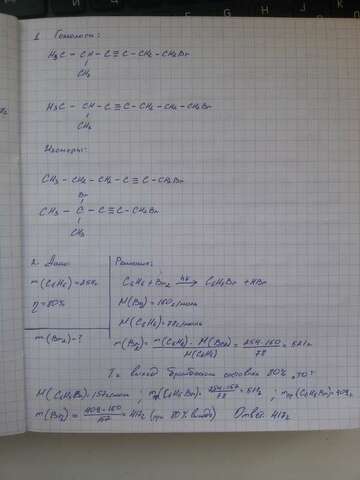 1. Гомологи:
H3C - CH - C ≡ C - CH2 - CH2Br
CH3
H3C - CH - C ≡ C - CH2 - CH2 - CH2Br
CH3
Изомеры:
CH3 - CH2 - CH2 - C ≡ C - CH2Br
Br
CH3 - C - C ≡ C - CH2Br
CH3
2. Дано: Решение:
m(C6H6) = 254г C6H6 + Br2 → C6H5Br + HBr
η = 80% M(Br2) = 160 г/моль
M(C6H6) = 78 г/моль
m(Br2) - ? m(Br2) = m(C6H6) · M(Br2) / M(C6H6) = 254 · 160 / 78 = 521г
Т.к. выход бромбензола составил 80%, то:
M(C6H5Br) = 157 г/моль ; m (C6H5Br) = 254 · 157 / 78 = 511г ; mпр(C6H5Br) = 409г
m(Br2) = 409 · 160 / 157 = 417г (при 80% выхода) Ответ: 417г